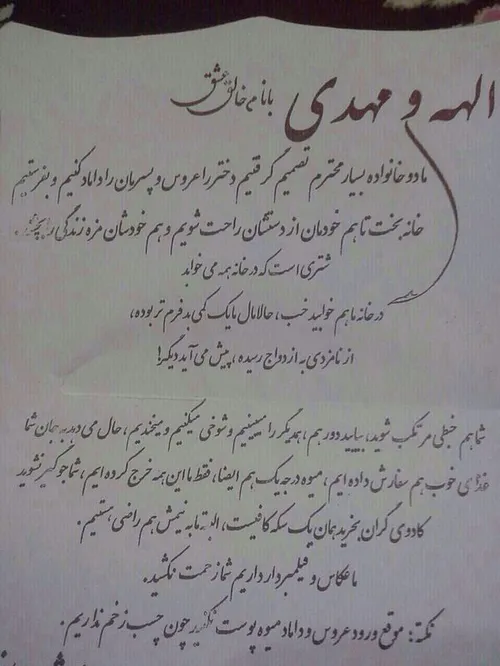 با نام خالق عشق
الهه و مهدی
ما دو خانواده بسیار محترم تصمیم گرفتیم دختر را عروس و پسرمان را داماد کنیم و بفرستیم
خانه بخت تا هم خودمان از دستشان راحت شویم و هم خودشان مزه زندگی را بچشند.
شتری است که در خانه همه می خوابد
در خانه ما هم خوابید خب، حالا مال ما یک کمی بد فرم تر بوده،
از نامزدی به ازدواج رسیده، پیش می آید دیگر!
شما هم خبطی مرتکب شوید، بیایید دور هم، همدیگر را میبینیم و شوخی میکنیم و میخندیم، حال می دهد به جان شما
غذای خوب هم سفارش داده ایم، میوه درجه یک هم ایضا، فقط ما این همه خرج کرده ایم، شما جو گیر نشوید
کادوی گران بخرید همان یک سکه کافیست، البته ما به نیمش هم راضی هستیم.
ما عکاس و فیلمبردار داریم شما زحمت نکشید.
نکته: موقع ورود عروس و داماد میوه پوست نگیرید چون چسب زخم نداریم.